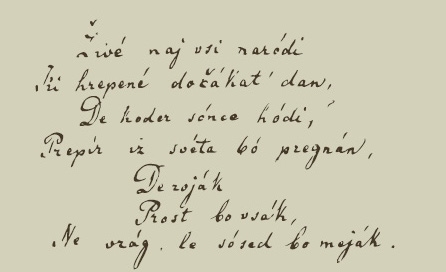 Živé naj vsi naródi
Ki hrepené dočákat' dan,
De koder sónce hódi,
Prepír iz svéta bó pregnán,
De roják
Prost bo vsák,
Ne vrág, le sósed bo meják.